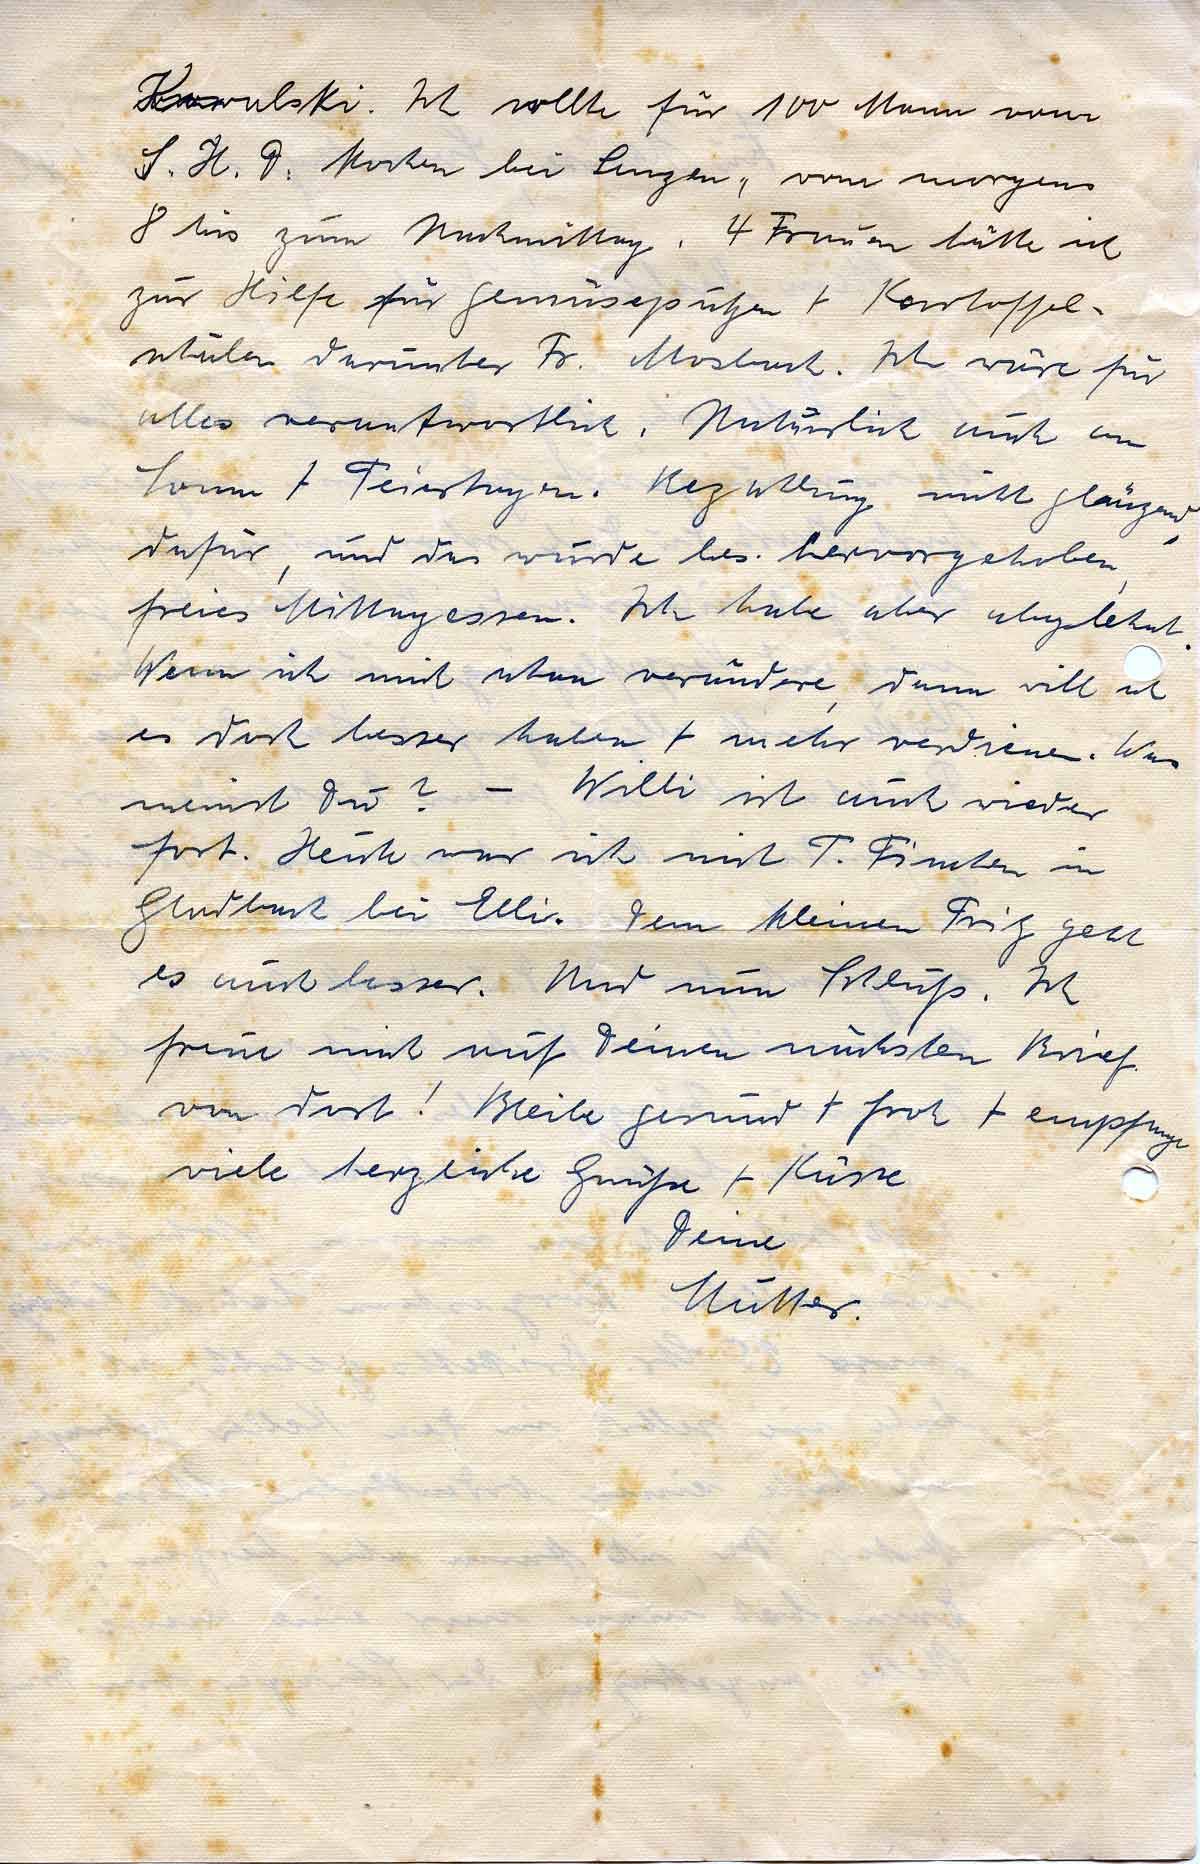 Kowalski. Ich sollte für 100 Mann vom
S. H. D. kochen bei Lenzen, vom morgens
8 bis zum Nachmittag. 4 Frauen hätte ich
zur Hilfe für Gemüseputzen + Kartoffel-
schälen darunter Fr. Mosbach. Ich wäre für
alles verantwortlich. Natürlich auch an
Sonn + Feiertagen. Bezahlung nicht glänzend,
dafür, und das wurde bes. hervorgehoben,
freies Mittagessen. Ich habe aber abgelehnt.
Wenn ich mich schon verändere, dann will ich
es doch besser haben + mehr verdienen. Was
meinst Du? – Willi ist auch wieder
fort. Heute war ich mit T. Finchen in
Gladbach bei Elli. Dem kleinen Fritz geht
es auch besser. Und nun Schluß. Ich
freue mich auf Deinen nächsten Brief
von dort! Bleibe gesund + froh + empfange
viele herzliche Grüße + Küsse
Deine
Mutter.